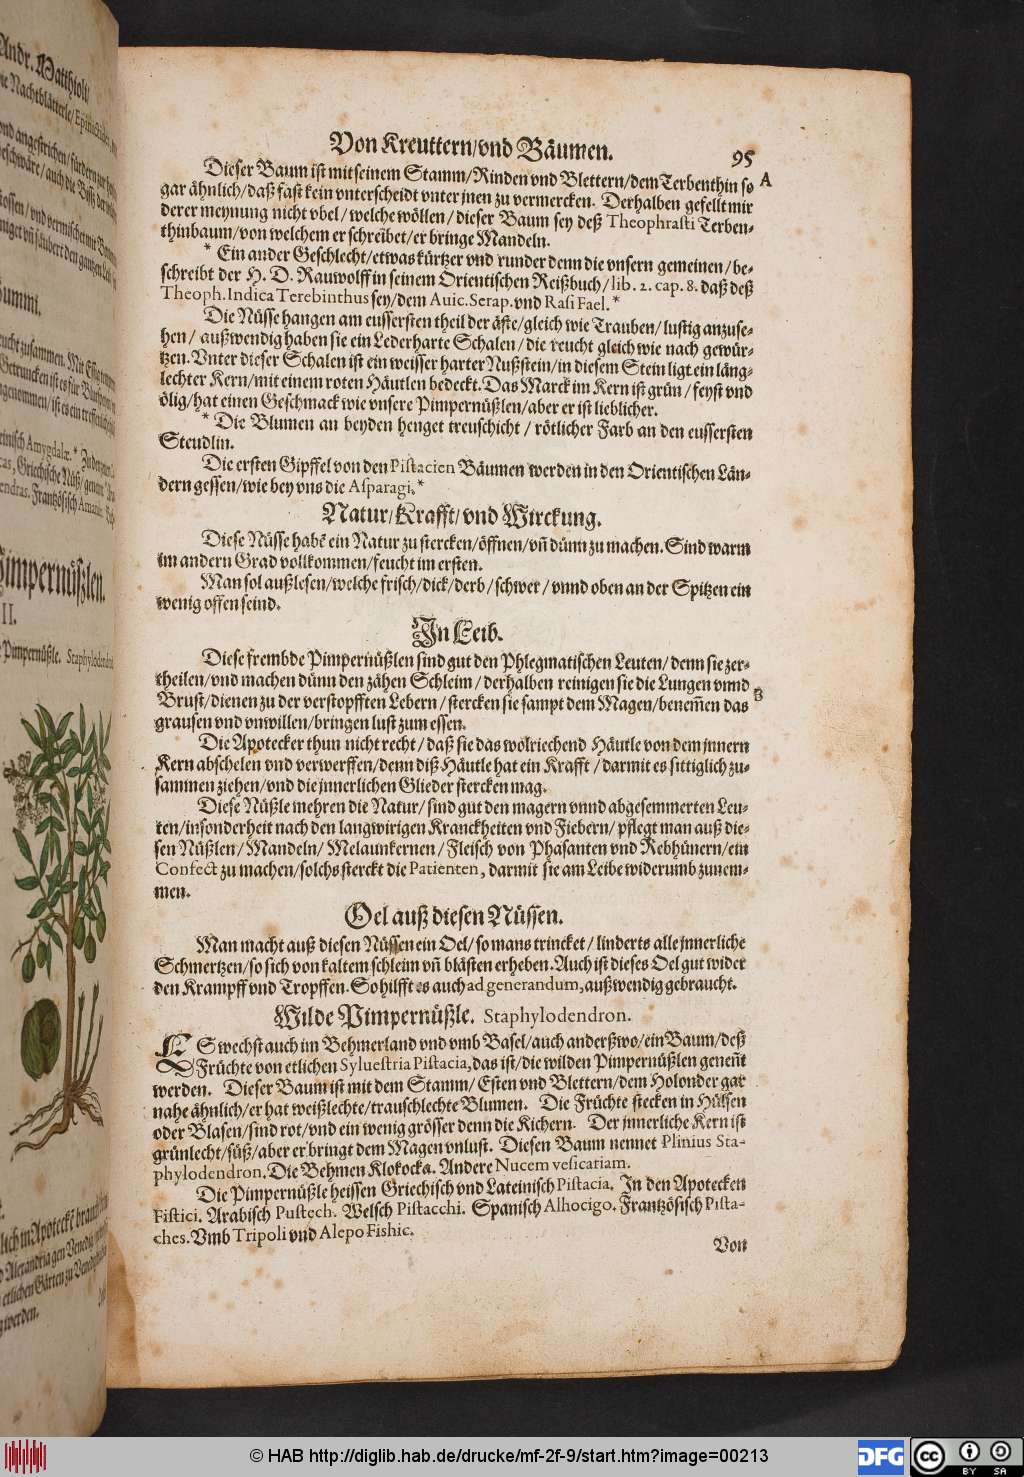 Andr. Matthioli/
Gummi.
Pimpernüßlen.
II.
Pimpernüßle. Staphylodendron
Von Kreuttern/vnd Bäumen. 95
Dieser Baum ist mit seinem Stamm/Rinden vnd Blettern/dem Terbenthin so A
gar ähnlich/daß fast kein vnterscheidt vnter jnen zu vermercken. Derhalben gefellt mir
derer meynung nicht vbel/welche wöllen/dieser Baum sey deß Theophrasti Terben-
thinbaum/von welchem er schreibet/er bringe Mandeln.
* Ein ander Geschlecht/etwas kürtzer vnd runder denn die vnsern gemeinen/be-
schreibt der H. D. Rauwolff in seinem Orientischen Reißbuch/lib. 2. cap. 8. daß deß
Theoph. Indica Terebinthus sey/dem Auic. Serap. vnd Rasi Fael. *
Die Nüsse hangen am eussersten theil der äste/gleich wie Trauben/lustig anzuse-
hen/außwendig haben sie ein Lederharte Schalen/die reucht gleich wie nach gewür-
tzen. Vnter dieser Schalen ist ein weisser harter Nußstein/in diesem Stein ligt ein läng-
lechter Kern/mit einem roten Häutlen bedeckt. Das Marck im Kern ist grün/feyst vnd
ölig/hat einen Geschmack wie vnsere Pimpernüßlen/aber er ist lieblicher.
* Die Blumen an beyden henget treuschicht/rötlicher Farb an den eussersten
Steudlin.
Die ersten Gipffel von den Pistacien Bäumen werden in den Orientischen Län-
dern gessen/wie bey vns die Asparagi. *
Natur/Krafft/vnd Wirckung.
Diese Nüsse habē ein Natur zu stercken/öffnen/vñ dünn zu machen. Sind warm
im andern Grad vollkommen/feucht im ersten.
Man sol außlesen/welche frisch/dick/derb/schwer/vnnd oben an der Spitzen ein
wenig offen seind.
In Leib.
Diese frembde Pimpernüßlen sind gut den Phlegmatischen Leuten/denn sie zer-
theilen/vnd machen dünn den zähen Schleim/derhalben reinigen sie die Lungen vnnd B
Brust/dienen zu der verstopfften Lebern/stercken sie sampt dem Magen/benem̃en das
grausen vnd vnwillen/bringen lust zum essen.
Die Apotecker thun nicht recht/daß sie das wolriechend Häutle von dem jnnern
Kern abschelen vnd verwerffen/denn diß Häutle hat ein Krafft/darmit es sittiglich zu-
sammen ziehen/vnd die jnnerlichen Glieder stercken mag.
Diese Nüßle mehren die Natur/sind gut den magern vnnd abgesemmerten Leu-
ten/insonderheit nach den langwirigen Kranckheiten vnd Fiebern/pflegt man auß die-
sen Nüßlen/Mandeln/Melaunkernen/Fleisch von Phasanten vnd Rebhünern/ein
Confect zu machen/solchs sterckt die Patienten, darmit sie am Leibe widerumb zunem-
men.
Oel auß diesen Nüssen.
Man macht auß diesen Nüssen ein Oel/so mans trincket/linderts alle jnnerliche
Schmertzen/so sich von kaltem schleim vñ blästen erheben. Auch ist dieses Oel gut wider
den Krampff vnd Tropffen. So hilfft es auch ad generandum, außwendig gebraucht.
Wilde Pimpernüßle. Staphylodendron.
ES wechst auch im Behmerland vnd vmb Basel/auch anderßwo/ein Baum/deß
Früchte von etlichen Syluestria Pistacia, das ist/die wilden Pimpernüßlen geneñt
werden. Dieser Baum ist mit dem Stamm/Esten vnd Blettern/dem Holonder gar
nahe ähnlich/er hat weißlechte/trauschlechte Blumen. Die Früchte stecken in Hülsen
oder Blasen/sind rot/vnd ein wenig grösser denn die Kichern. Der jnnerliche Kern ist
grünlecht/süß/aber er bringt dem Magen vnlust. Diesen Baum nennet Plinius Sta-
phylodendron. Die Behmen Klokocka. Andere Nucem vesicariam.
Die Pimpernüßle heissen Griechisch vnd Lateinisch Pistacia. In den Apotecken
Fistici. Arabisch Pustech. Welsch Pistacchi. Spanisch Alhocigo. Frantzösisch Pista-
ches. Vmb Tripoli vnd Alepo Fishic.
Von
© HAB http://diglib.hab.de/drucke/mf-2f-9/start.htm?image=00213
DFG
cc BY SA